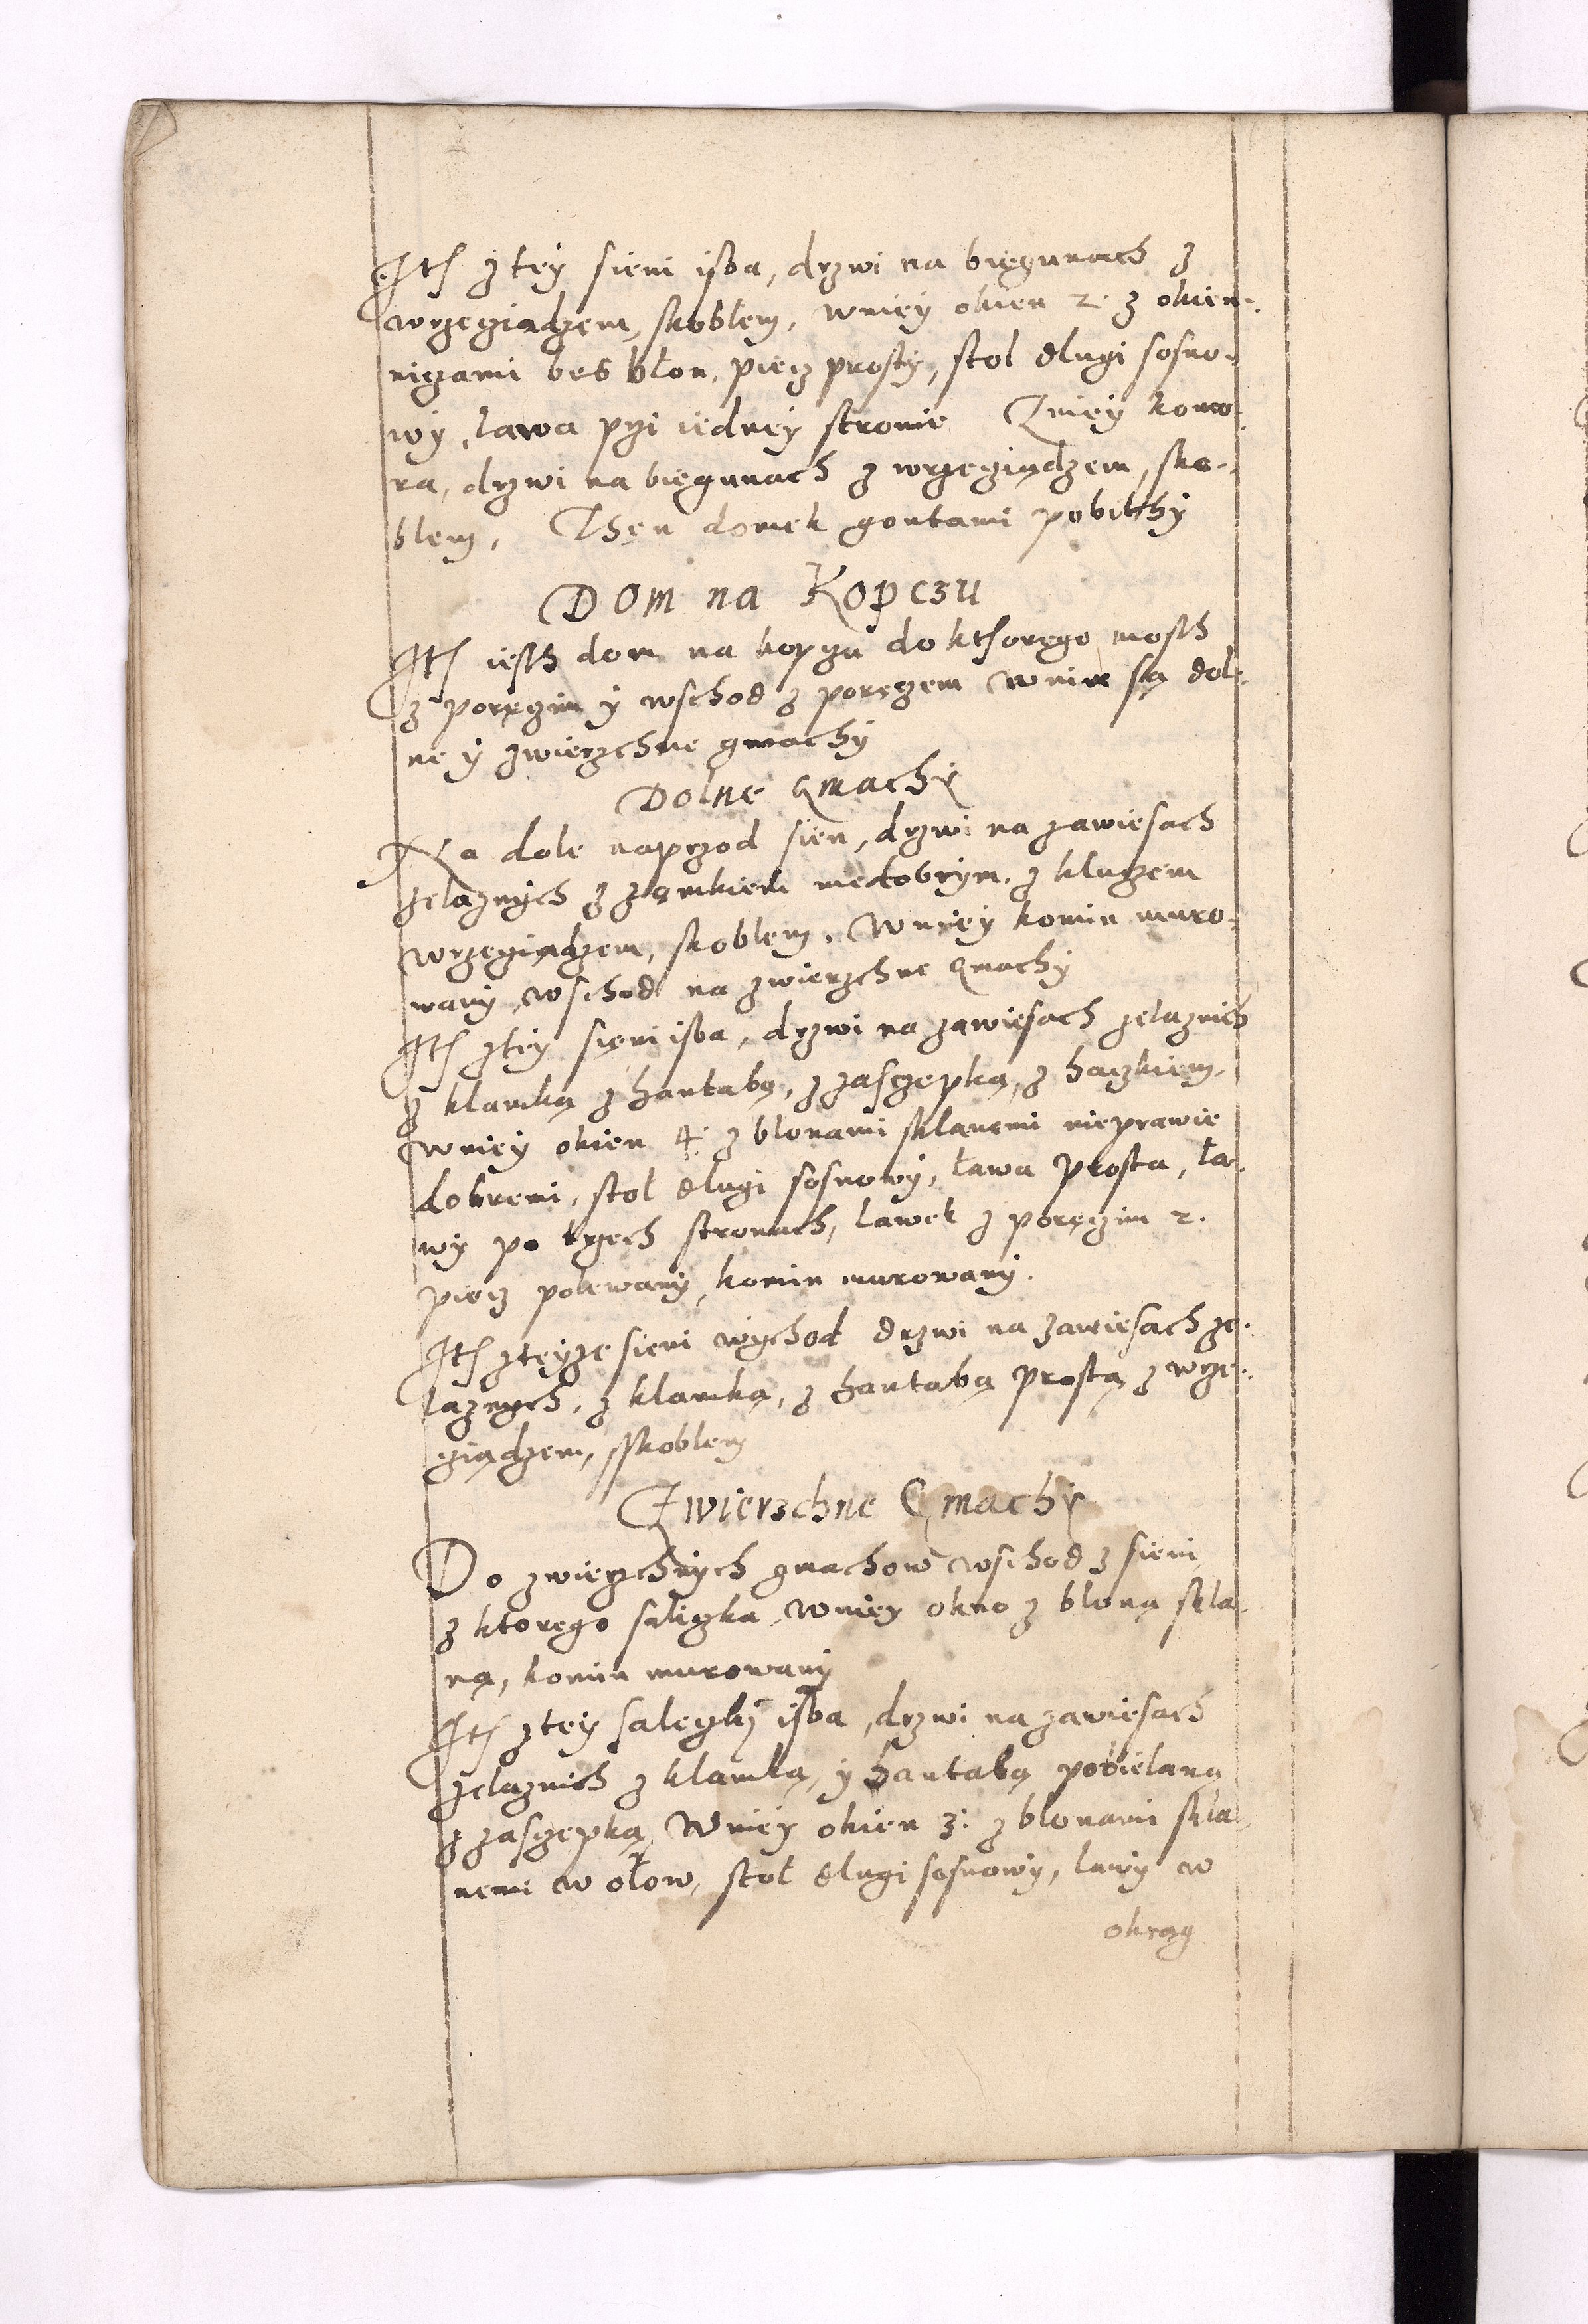 Ith z tey sieni isba, drzwi na biegunach z
wrzeciądzem, skoblem, wniey okien 2. z okien-
niczami bes błon, piecz prosty, stol dlugi sosno-
wy, lawa przi iedney stronie Zniey komo-
ra, drzwi na biegunach z wrzeciądzem, sko-
blem, Then domek gontami pobithy
Dom na Kopczu
Ith iesth dom na kopczu do kthorego mosth
z poręczim y wschod z poręczem wnim są dol-
ne y zwierzchne gmachy
Dolne Gmachy
Na dole naprzod sien, drzwi na zawiesach
zelaznych z zamkiem niedobrym, z kluczem
wrzeciądzem, skoblem, wniey komin muro-
wany, wschod na zwierzchne Gmachy
Ith z tey sieni isba, drzwi na zawiesach zelaznich
z klamką z hantabą, z zasczepką, z haczkiem,
wniey okien 4. z blonami sklanemi nieprawie
dobremi, stol dlugi sosnowy, ława prosta, ła-
wy po trzech stronach, lawek z poręczim 2.
piecz polewany, komin murowany.
Ith z teyze sieni wychod drzwi na zawiesach ze-
laznych, z klamką, z hantabą prostą z wrze-
ciądzem, skoblem
Zwierzchne Gmachy
Do zwierzchnych gmachow wschod z sieni
z ktorego saliczka, wniey okno z bloną skla-
ną, komin murowany
Ith z tey saleczky isba, drzwi na zawiesach
zelaznich z klamką, y hantabą pobielaną
z zasczepką, Wniey okien 3: z blonami skla
nemi w ołow, stoł dlugi sosnowy, lawy w
okrąg